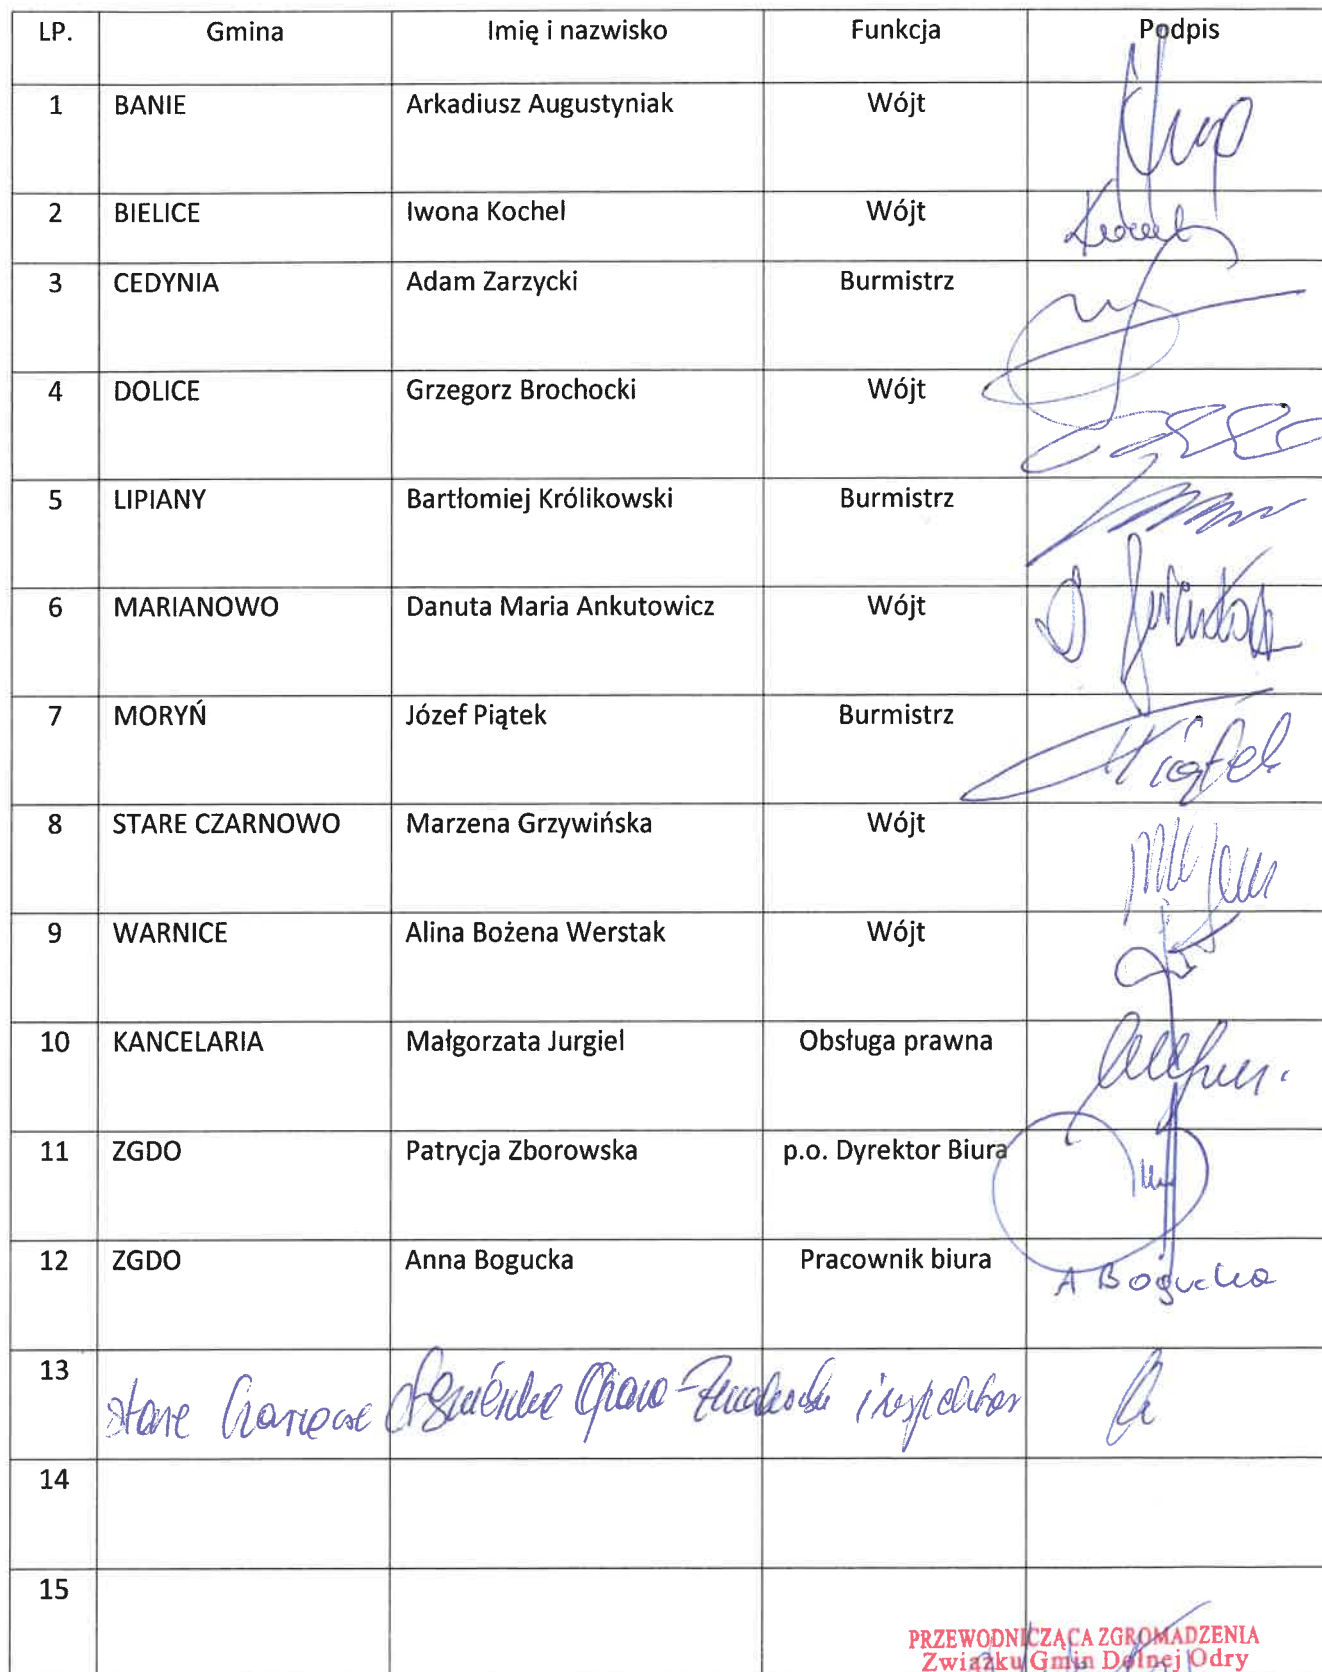 LP. Gmina Imię i nazwisko Funkcja Podpis
1 BANIE Arkadiusz Augustyniak Wójt
2 BIELICE Iwona Kochel Wójt
3 CEDYNIA Adam Zarzycki Burmistrz
4 DOLICE Grzegorz Brochocki Wójt
5 LIPIANY Bartłomiej Królikowski Burmistrz
6 MARIANOWO Danuta Maria Ankutowicz Wójt
7 MORYŃ Józef Piątek Burmistrz Piątek
8 STARE CZARNOWO Marzena Grzywińska Wójt
9 WARNICE Alina Bożena Werstak Wójt
10 KANCELARIA Małgorzata Jurgiel Obsługa prawna
11 ZGDO Patrycja Zborowska p.o. Dyrektor Biura
12 ZGDO Anna Bogucka Pracownik biura A Bogucka
13 Stare inspektor
14
15
PRZEWODNICZĄCA ZGROMADZENIA
Związku Gmin Dolnej Odry